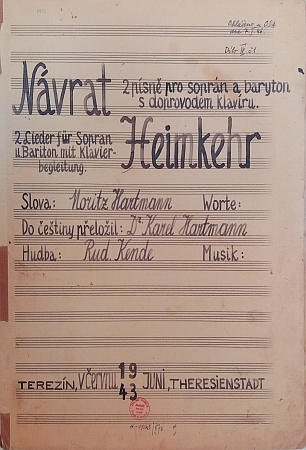 Návrat
2 písně pro soprán a baryton
s doprovodem klavíru.
2 Lieder für Sopran
u. Bariton mit Klavier-
begleitung.
Heimkehr
Slova: Moritz Hartmann Worte:
Do češtiny přeložil: Dr Karel Hartmann
Hudba: Rud Kende Musik:
TEREZÍN, V ČERVNU 1943 JUNI, THERESIENSTADT